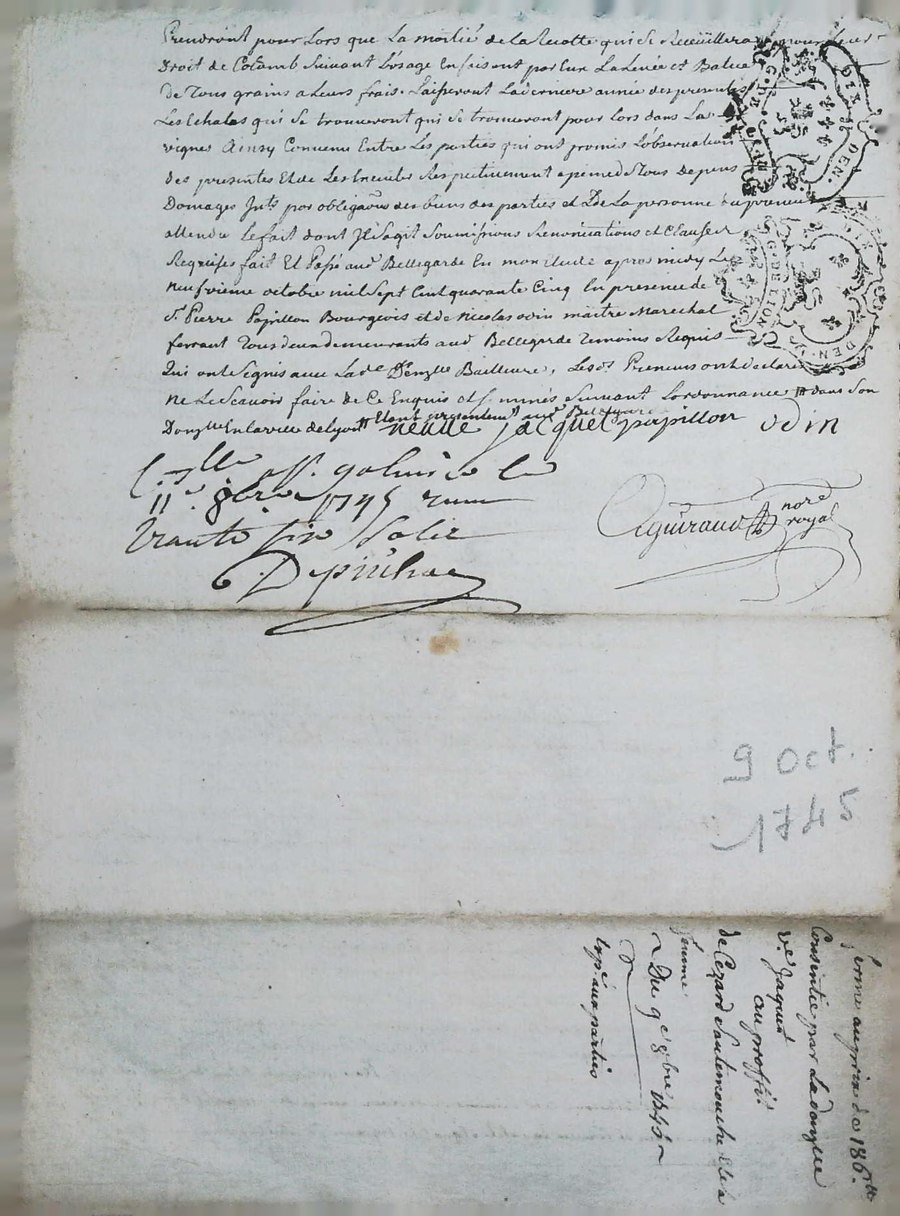 Prendront pour Lors que La moitié de la Recotte qui se Receüillera pour Leur
Droit de Colomb Suivant L'usage En faisant par Eux La Levée et Batue
de Tous grains a Leurs frais. Laisseront La derniere année des presentes
Les Echalas qui se trouveront qui se trouveront pour Lors dans La
vignes Ainsy Convenu Entre Les parties qui ont promis L'observation
des presentes Et de Les Executer Respectivement a peine de Tous Depens
Domages Jnts par obligaons des biens des parties et De La personne du preneur
attendu Le fait dont Jl S'agit Soumissions Renonciations et Clauses
Requises fait Et Passé aud Bellegarde En mon Etude apres midy Le
neufvieme octobre mil Sept Cent quarante Cinq En presence de
Sr Pierre Papillon Bourgeois et de Nicolas odin maitre Marechal
ferrant Tous deux demeurants aud Bellegarde Temoins Requis
Qui ont Signés avec Lade Demzlle Bailleure, Lesds Preneurs ont declaré
ne Le Scavoir faire de Ce Enquis et Sommés Suivant Lordonnance # dans Son
Domzlle En la ville de Lyon # Etant presentement aud Bellegarde
neuve jacquet papillon odin
11e 8bre 1745
trante six Sols
Aguiraud nore
royal
9 Oct.
1745
ferme au prix de 186 tt
Consentie par La dozelle
ve Jaquet
au proffit
de Cezard et Sa
femme
Du 9e 8bre 1745
Expé aux parties
G. DE LION
DEN.
SIX DEN.